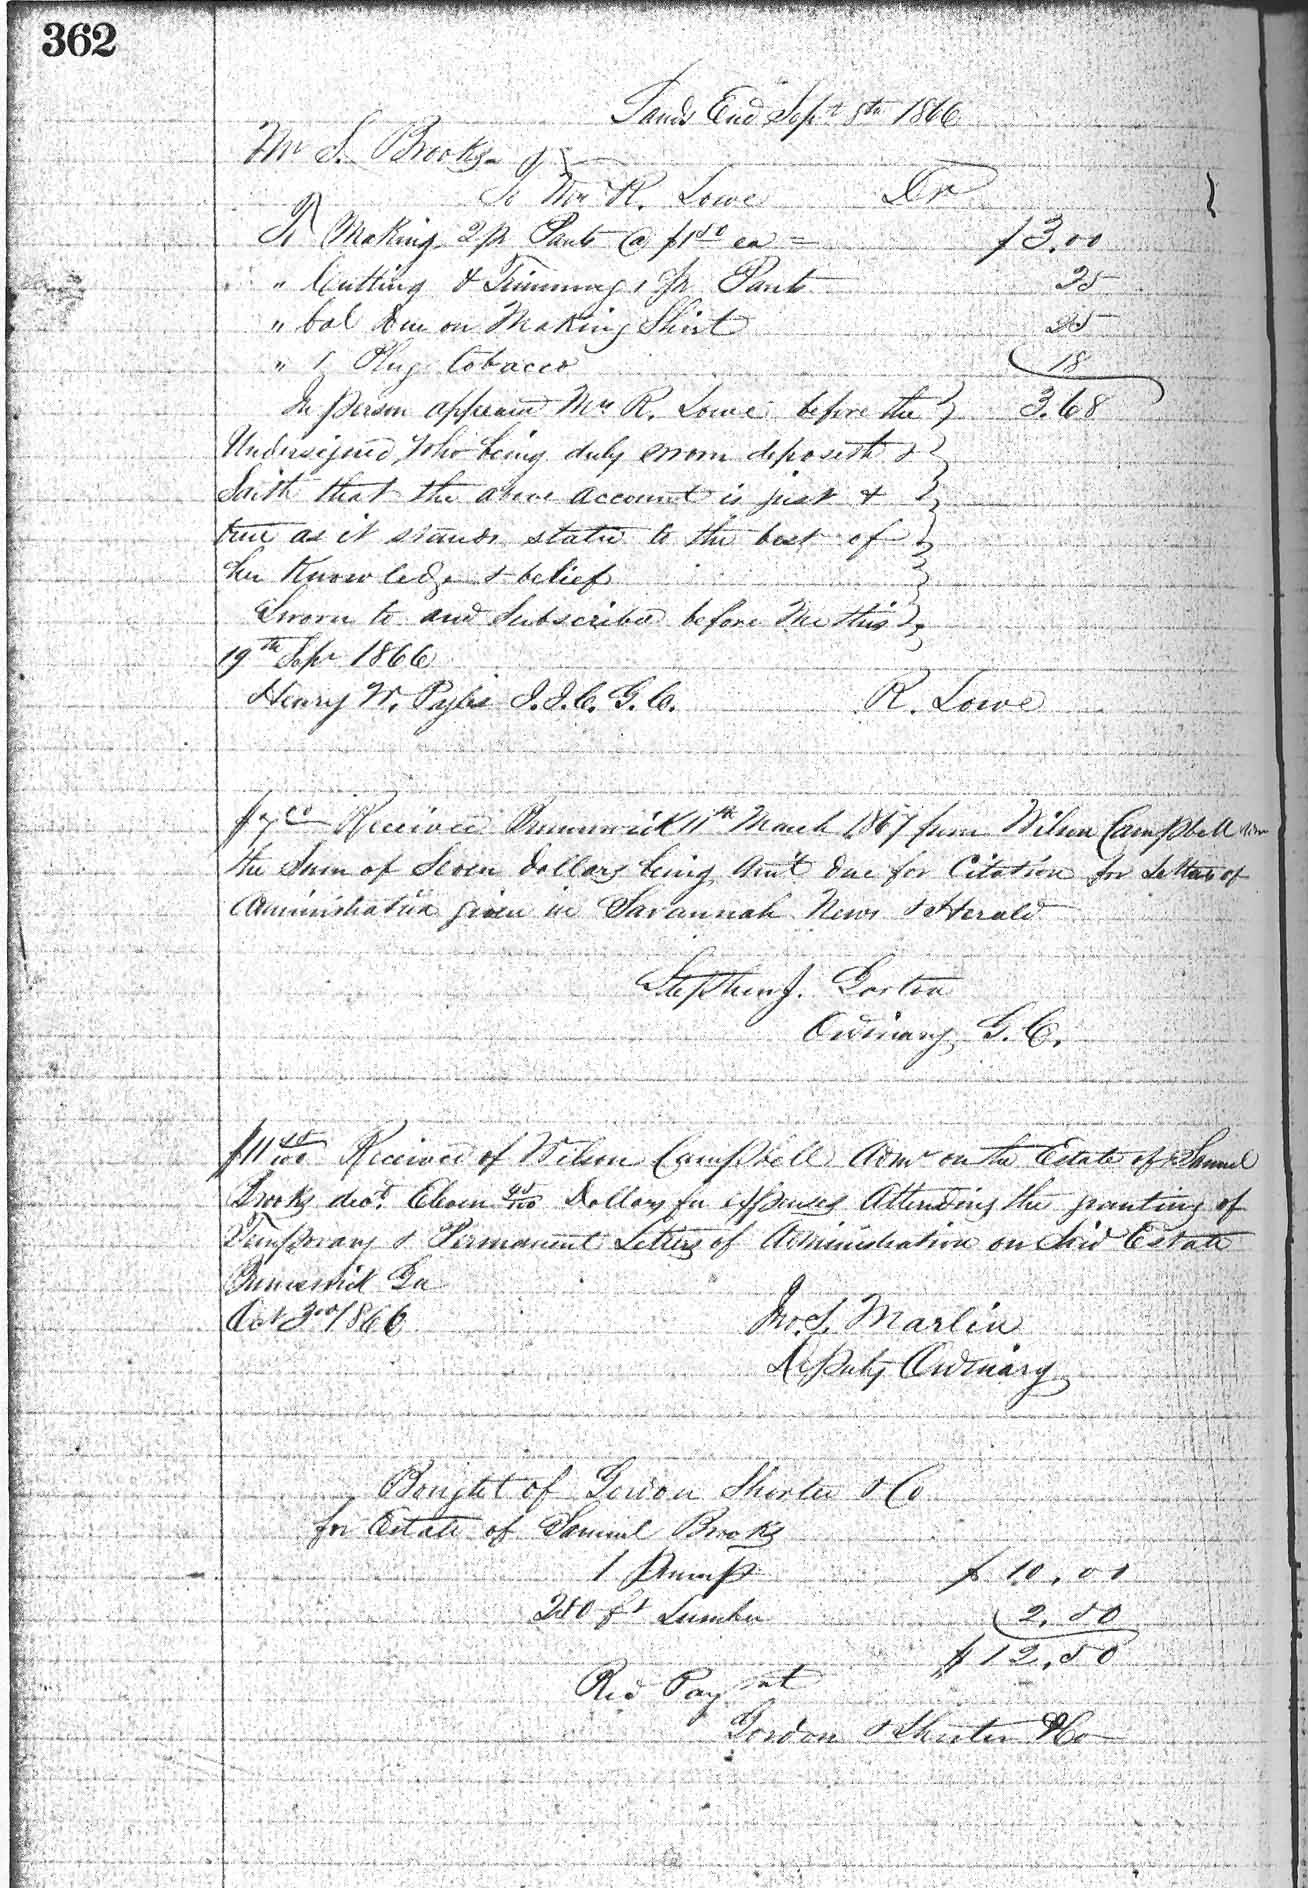 362
Lands End Sept 8th 1866
Mr S. Brooks
To Mrs R. Lowe Dr
To Making 2 pr Pants @ $1 50 ea = $3.00
" Cutting & Trimming 1 pr Pants 25
" bal Due on Making Shirt 25
" 1 Plug tobacco 18
In person appeared Mrs R. Lowe before the } 3.68
Undersigned, who being duly sworn deposeth &
Saith that the above account is just &
true as it stands stated to the best of
her Knowledge & belief
Sworn to and Subscribed before Me this
19th Sept 1866
Henry W. J.I.C. G.C. R. Lowe
$7 00 Received Brunswick 11th March 1867 from Wilson Campbell Adm
the Sum of Seven Dollars being Am't due for Citation for Letters of
Administration given in Savannah News & Herald
Stephen J. Gorton
Ordinary G. C.
$11 Received of Wilson Campbell Admr on the Estate of Samuel
Brooks decd. Eleven Dollars for expenses Attending the granting of
Temporary & Permanent Letters of Administration on Said Estate
Brunswick Ga
Oct 3rd 1866 Jno. S. Marlin
Deputy Ordinary
Bought of Gordon Shorter & Co
for Estate of Samuel Brooks
1 Pump $10.00
250 ft Lumber 2.50
$12.50
Recd Payment
Gordon & Shorter & Co